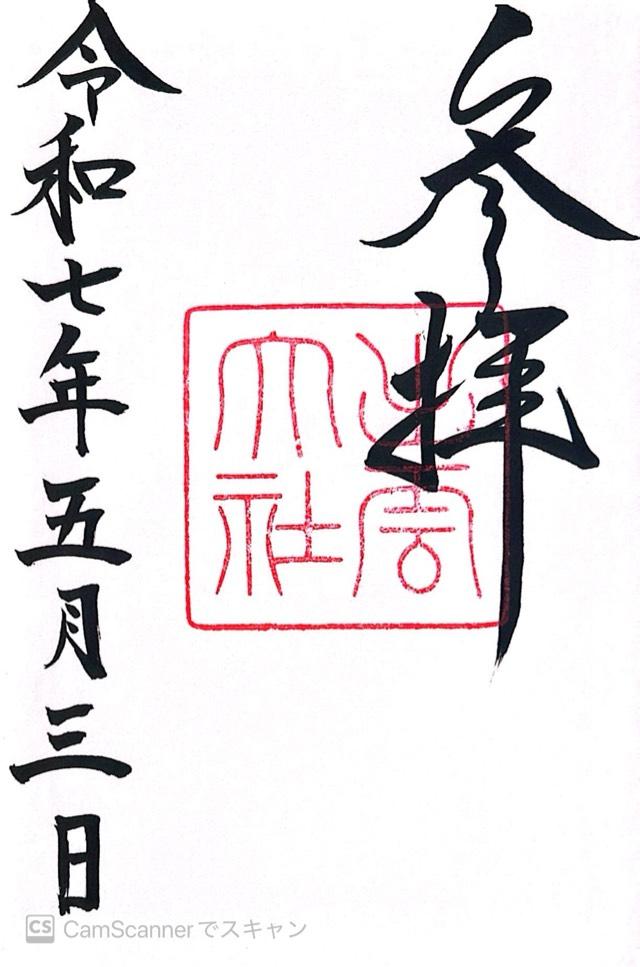 参拝
出雲
大社
令和七年五月三日
CS CamScannerでスキャン